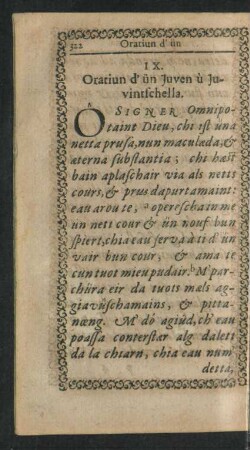 522 Oratiun d' ün
IX.
Oratiun d' ün Juven ù Ju-
vintschella.
O SIGNER Omnipo-
taint Dieu, chi ist üna
netta prusa, nun maculæda, &
æterna substantia; chi hast
bain aplaschair via als netts
cours, & prus dapurtamaint:
eau arou te, opereschaz ume
un nett cour & ün nouf bun
spiert, chia eau serva à ti d' un
vair bun cour, & ama te
cun tuot mieu pudair. M' par-
chüra eir da tuots mals ag-
giavüschamains, & pitta-
nœng. M' dò agiüd, ch' eau
poassa conterstar alg dalett
da la chiarn, chia eau num
detta,